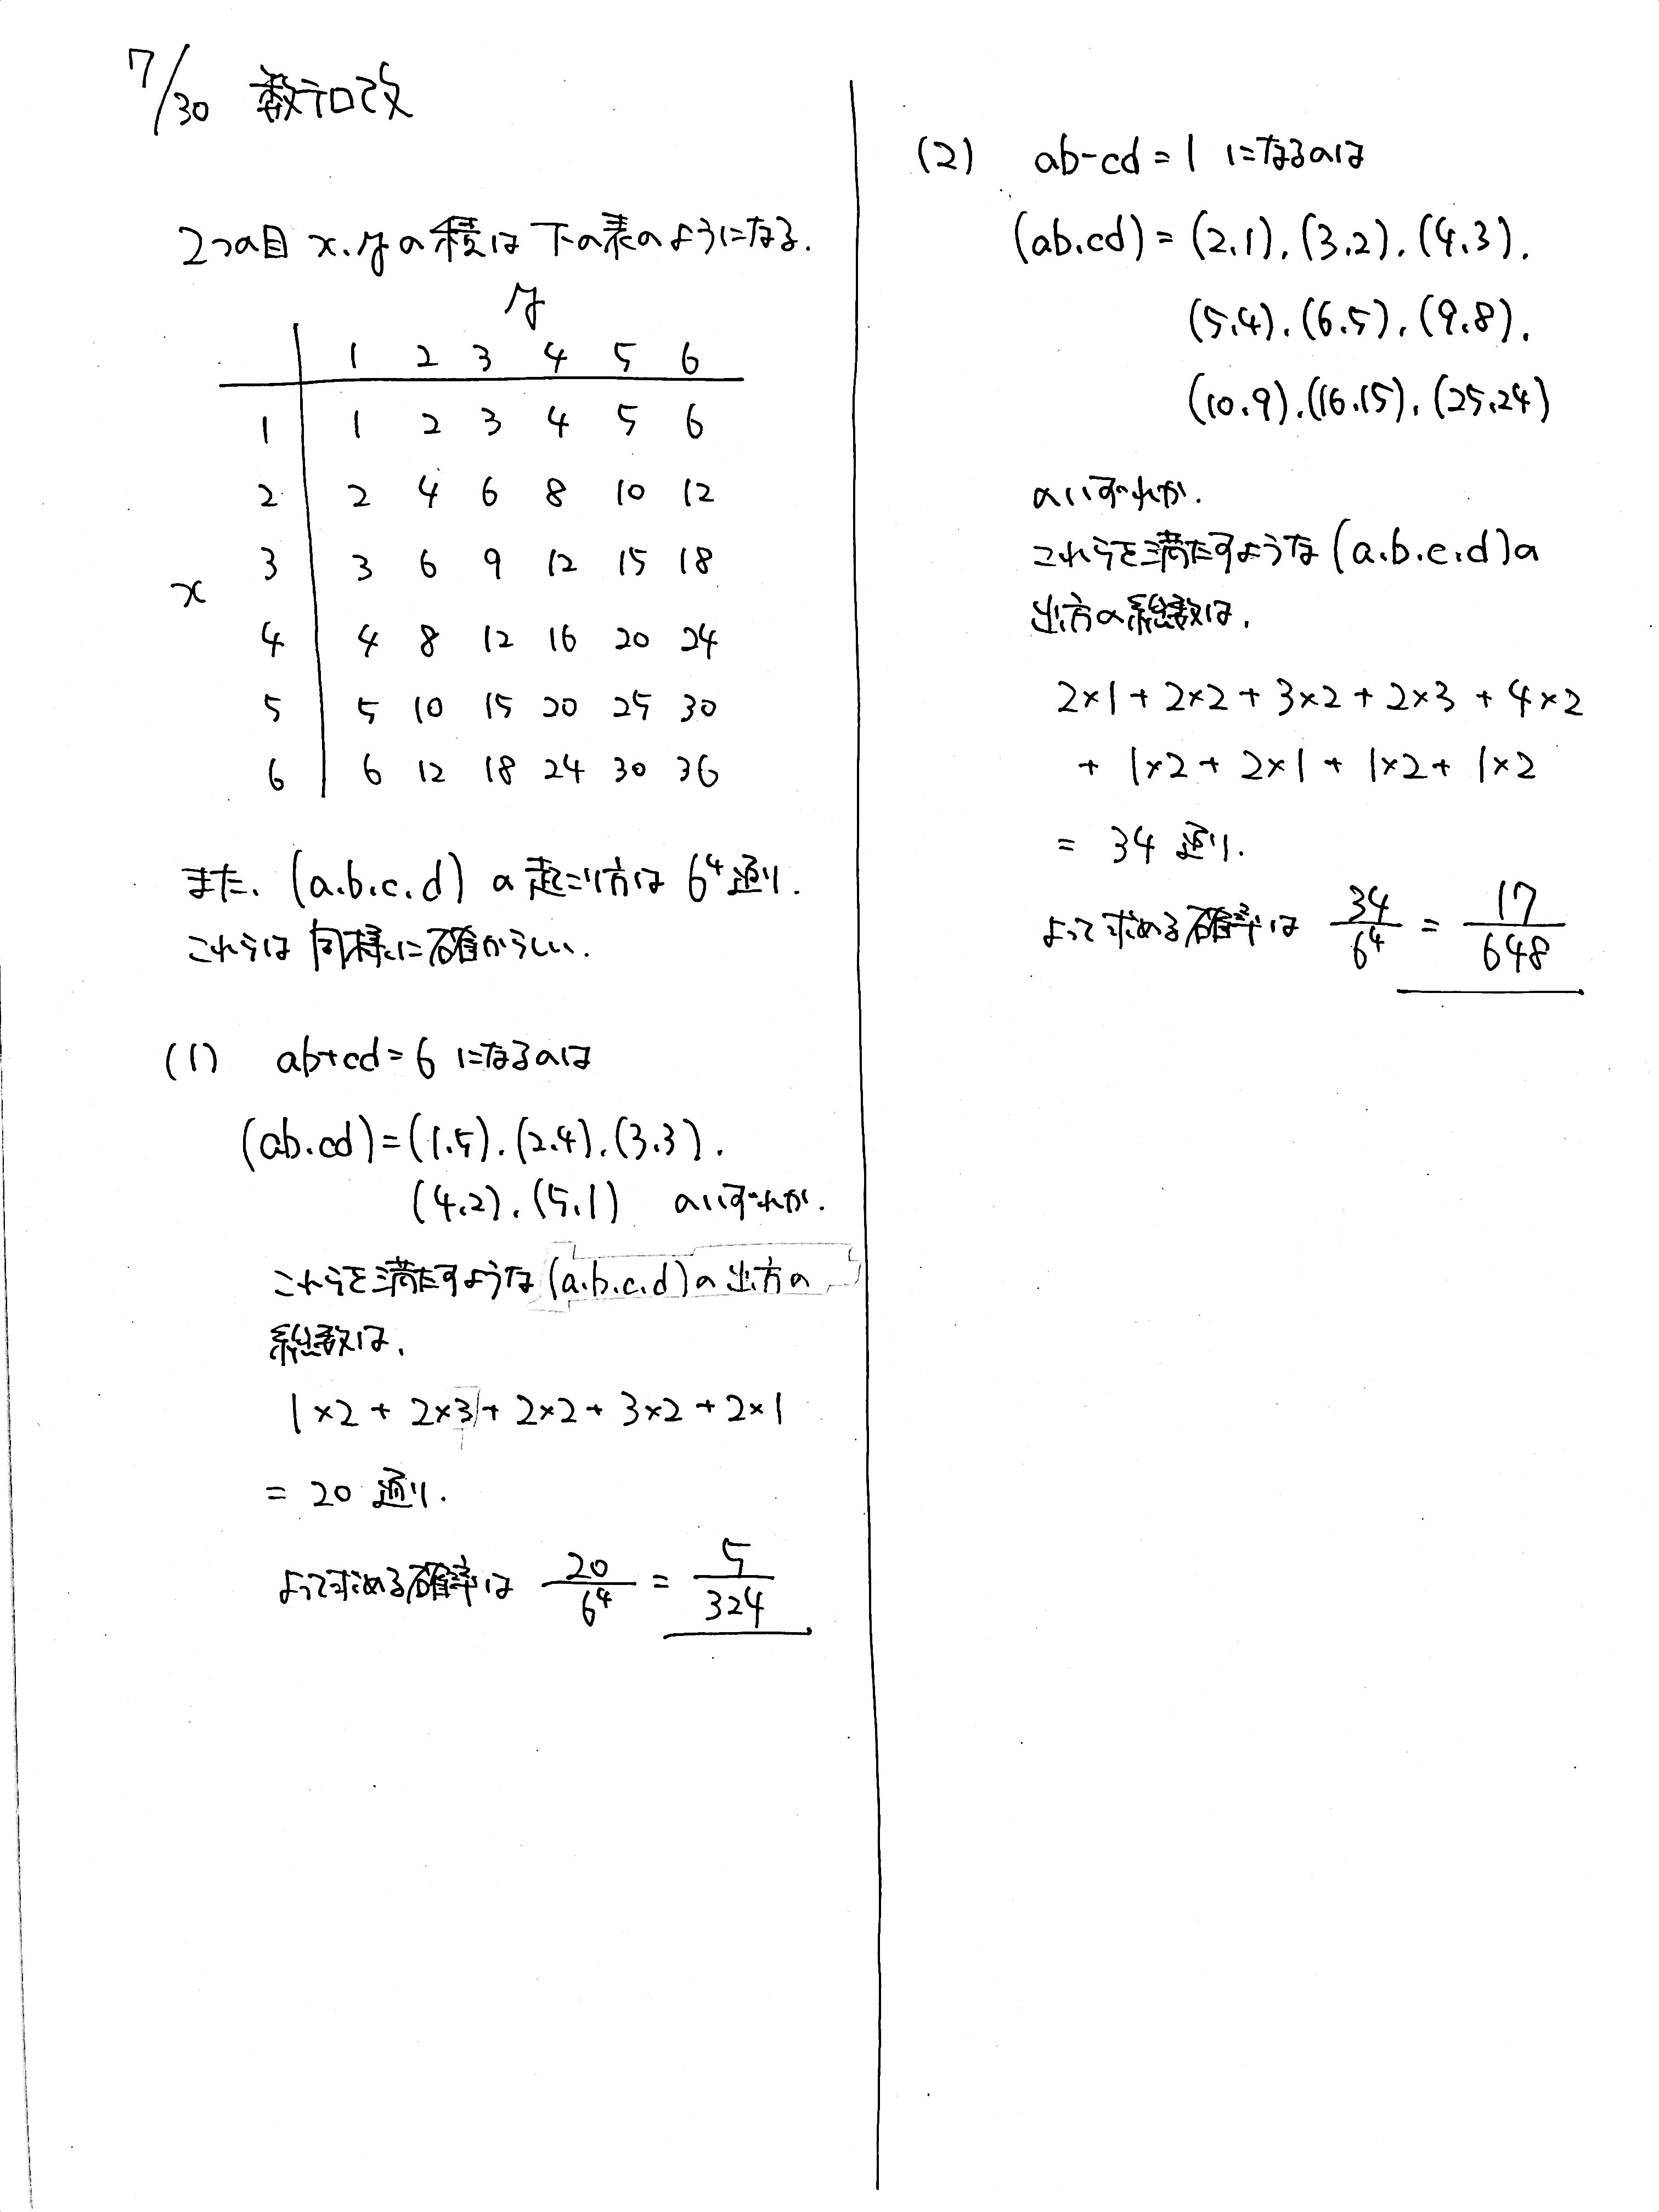 7/30 数テロ改
2つの目 x, y の積は下の表のようになる.
y
1 2 3 4 5 6
1 1 2 3 4 5 6
2 2 4 6 8 10 12
3 3 6 9 12 15 18
x
4 4 8 12 16 20 24
5 5 10 15 20 25 30
6 6 12 18 24 30 36
また, (a.b.c.d) の起こり方は 6⁴通り.
これらは同様に確からしい.
(1) ab+cd=6 になるのは
(ab.cd)=(1.5).(2.4).(3.3).
(4.2).(5.1) のいずれか.
これらを満たすような(a.b.c.d)の出方の
総数は,
1×2 + 2×3 + 2×2 + 3×2 + 2×1
= 20 通り.
よって求める確率は 20/6⁴ = 5/324
(2) ab-cd=1 になるのは
(ab.cd)=(2.1).(3.2).(4.3).
(5.4).(6.5).(9.8).
(10.9).(16.15).(25.24)
のいずれか.
これらを満たすような(a.b.c.d)の
出方の総数は,
2×1 + 2×2 + 3×2 + 2×3 + 4×2
+ 1×2 + 2×1 + 1×2 + 1×2
= 34 通り.
よって求める確率は 34/6⁴ = 17/648